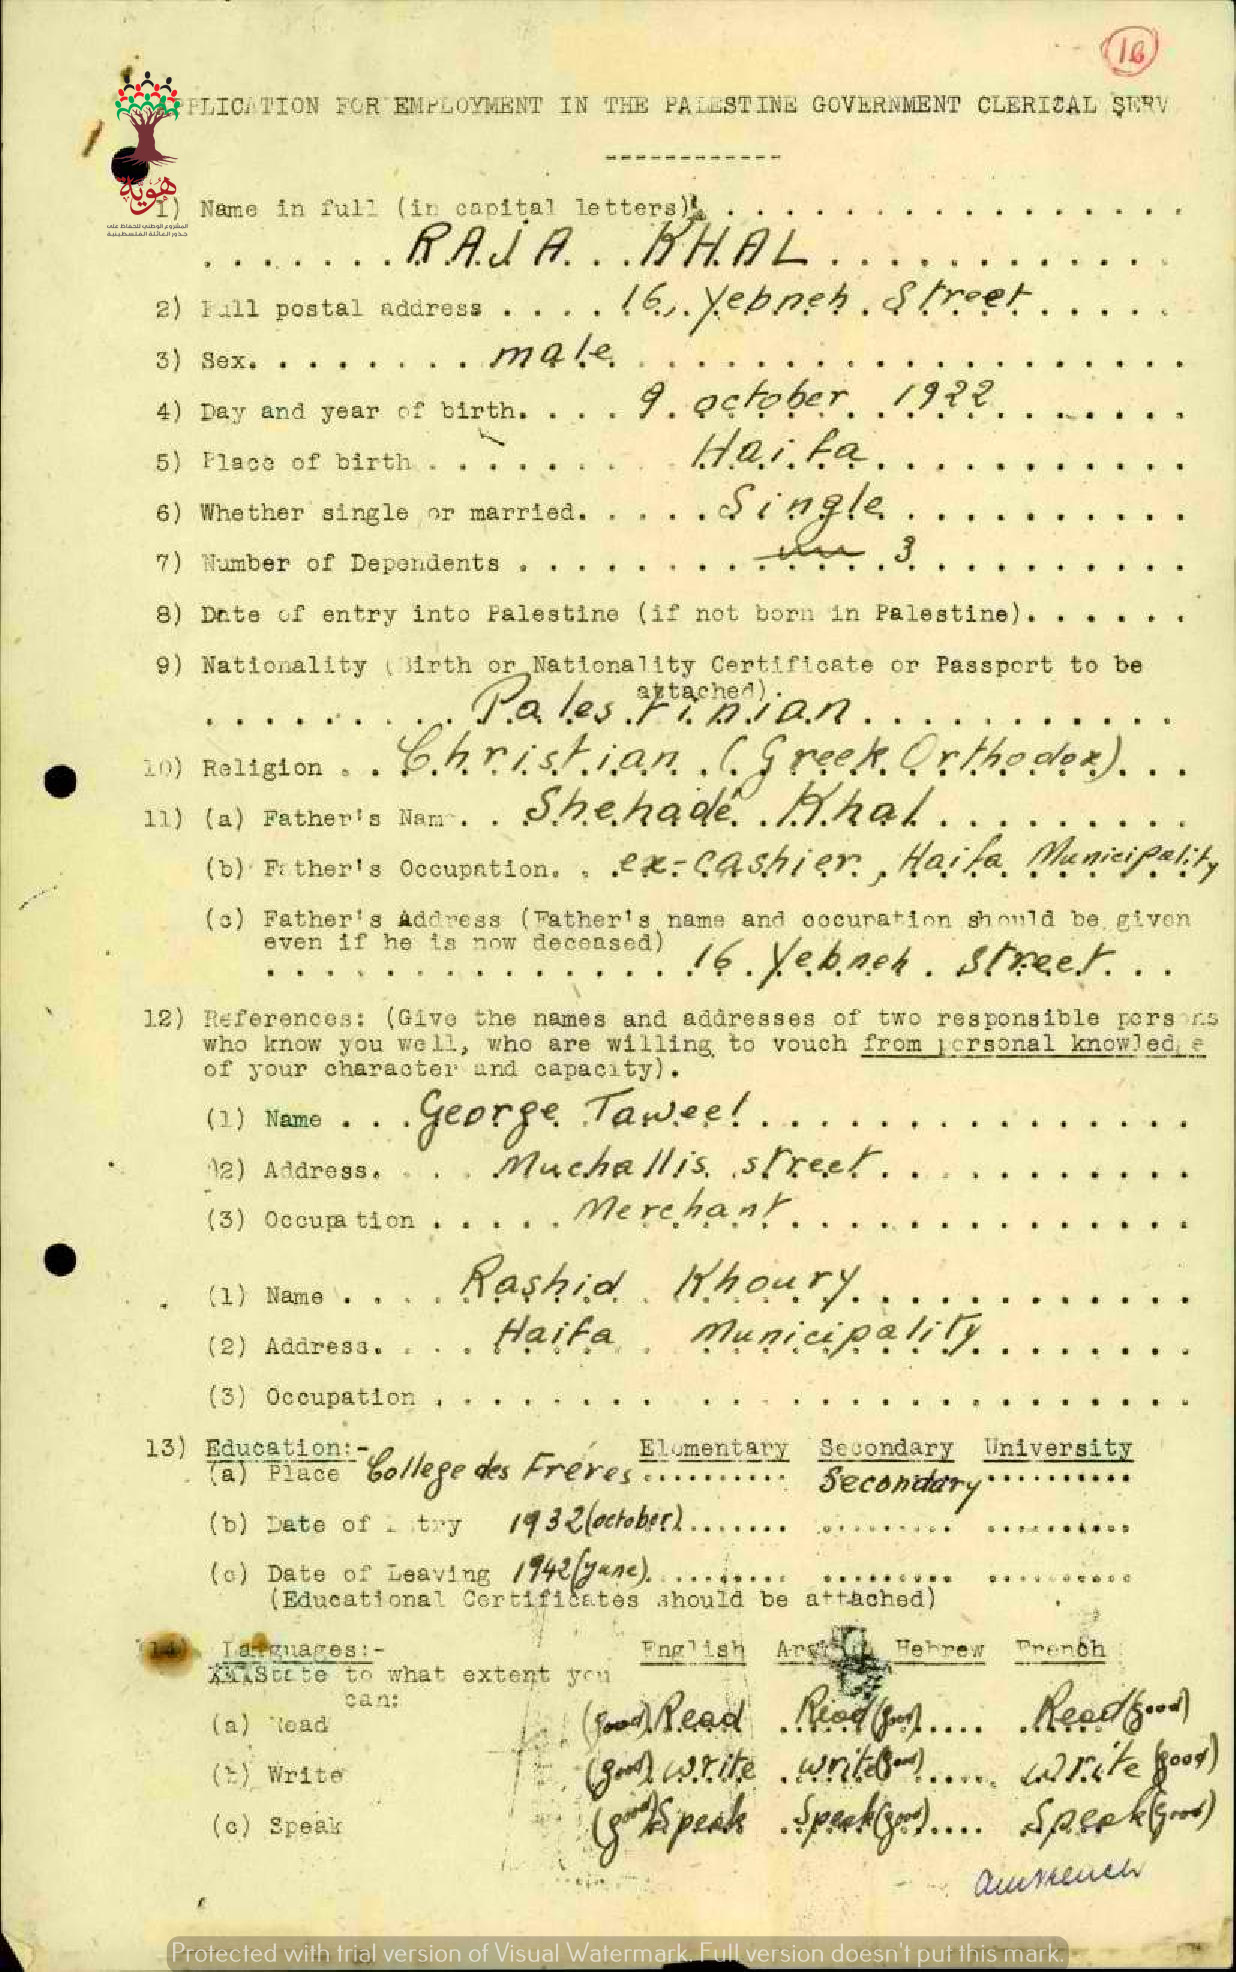 16
APPLICATION FOR EMPLOYMENT IN THE PALESTINE GOVERNMENT CLERICAL SERV
هوية
المشروع الوطني للحفاظ على
جذور العائلة الفلسطينية
1) Name in full (in capital letters)
RAJA KHAL
2) Full postal address . . . . 16, Yebneh Street
3) Sex. . . . . . . . male
4) Day and year of birth. . . . . 9 october 1922
5) Place of birth . . . . . . Haifa
6) Whether single or married. . . . . . Single
7) Number of Dependents . . . . . . 3
8) Date of entry into Palestine (if not born in Palestine). . . . . .
9) Nationality (Birth or Nationality Certificate or Passport to be
attached).
Palestinian
10) Religion . . . Christian (Greek Orthodox)
11) (a) Father's Name. . . Shehadé Khal
(b) Father's Occupation. . . ex-cashier, Haifa Municipality
(c) Father's Address (Father's name and occupation should be given
even if he is now deceased)
16 Yebneh street
12) References: (Give the names and addresses of two responsible persons
who know you well, who are willing to vouch from personal knowledge
of your character and capacity).
(1) Name . . . George Taweel
(2) Address. . . . Muchallis street
(3) Occupation . . . . . Merchant
(1) Name . . . . Rashid Khoury
(2) Address. . . . . Haifa Municipality
(3) Occupation . . . . . . .
13) Education:- Elementary Secondary University
(a) Place College des Fréres .......... Secondary ..........
(b) Date of Entry 1932 (october) ....... ......... ..........
(c) Date of Leaving 1942 (june) .......... ......... ..........
(Educational Certificates should be attached)
14) Languages:- English Arabic Hebrew French
State to what extent you
can:
(a) Read (good) Read Read (good) ..... Read (good)
(b) Write (good) write write (good) ..... write (good)
(c) Speak (good) Speak Speak (good) ..... Speak (good)
Protected with trial version of Visual Watermark. Full version doesn't put this mark.